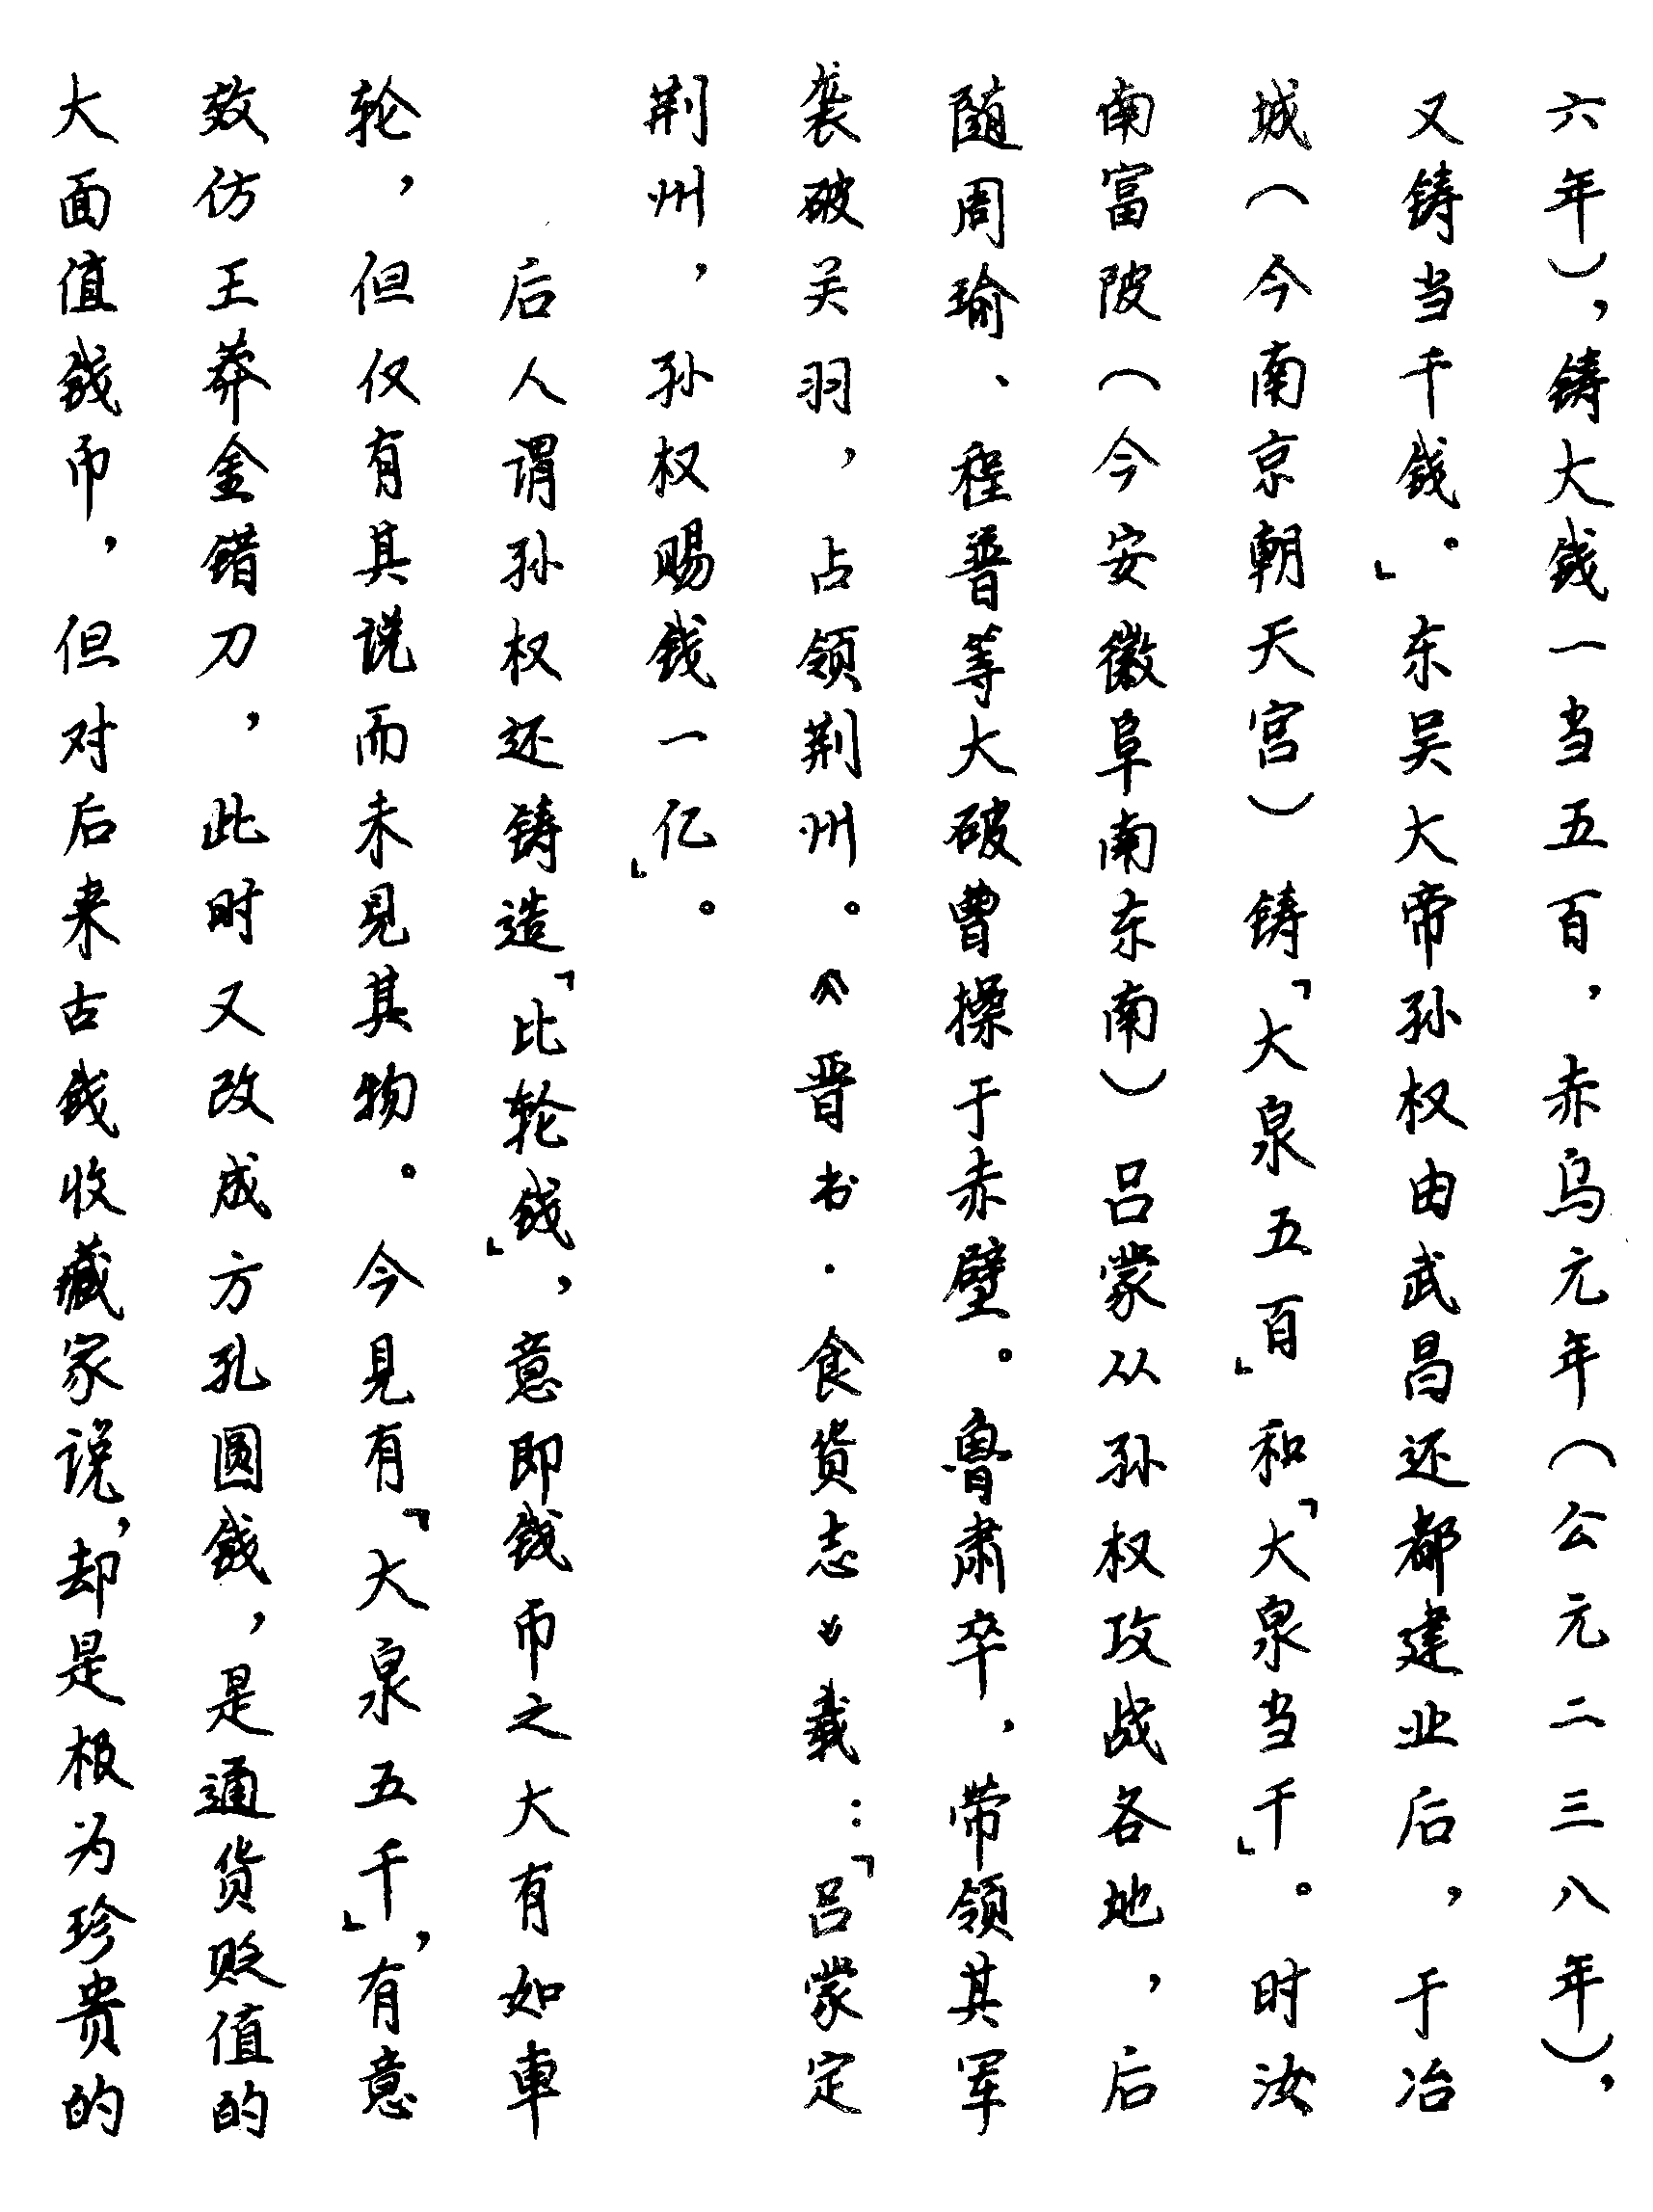 六年），铸大钱一当五百，赤乌元年（公元二三八年），
又铸当千钱。」东吴大帝孙权由武昌还都建业后，于冶
城（今南京朝天宫）铸「大泉五百」和「大泉当千」。时汝
南富陂（今安徽阜南东南）吕蒙从孙权攻战各地，后
随周瑜、程普等大破曹操于赤壁。鲁肃卒，带领其军
袭破关羽，占领荆州。《晋书·食货志》载：「吕蒙定
荆州，孙权赐钱一亿」。
后人谓孙权还铸造「比轮钱」，意即钱币之大有如車
轮，但仅有其说而未見其物。今見有「大泉五千」，有意
效仿王莽金错刀，此时又改成方孔圆钱，是通货贬值的
大面值钱币，但对后来古钱收藏家说，却是极为珍贵的